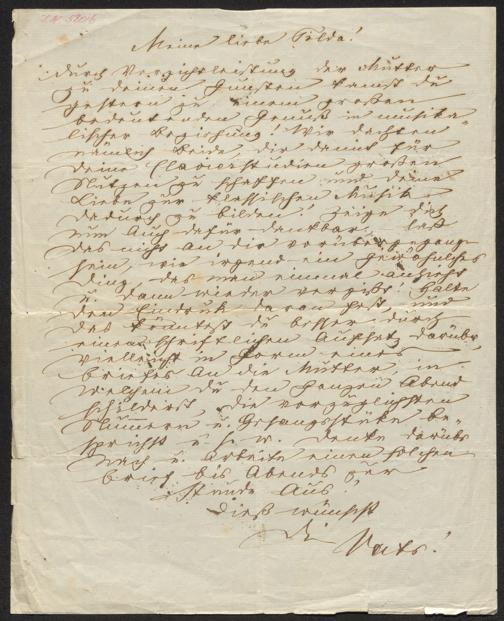 I.N. 58016
Meine liebe Tilda!
Durch Verzichtleistung der Mutter
zu deinen Gunsten kamst du
gestern zu einem großen
bedeutenden Genuß in musika-
lischer Beziehung! Wir dachten
nämlich beide dir damit für
deine Clavierstudien großen
Nutzen zu schaffen und deine
Liebe zur klassischen Musik
dadurch zu bilden. Zeige dich
nun auch dafür dankbar, laß
das nicht an dir vorübergegangen
sein, wie irgend ein gewöhnliches
Ding, das man einmal ansieht
u. dann wieder vergißt! Halte
den Eindruk daran fest, und
das könntest du besser durch
einen schriftlichen Aufsatz darüber
vielleicht in Form eines
Briefes an die Mutter, in
welchem du den ganzen Abend
schilderst, die vorzüglichsten
Numern u. Gesangsstüke be-
sprichst u. s. w. Denke darüber
nach u. arbeite einen solchen
Brief bis Abends zur
Stunde aus.
Dieß wünscht
Dein Vater!